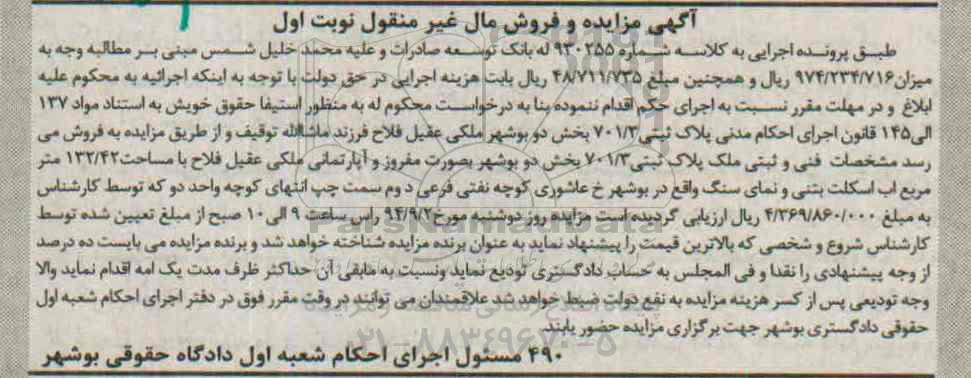 آگهی مزایده و فروش مال غیر منقول نوبت اول
طبق پرونده اجرایی به کلاسه شماره ۹۳۰۲۵۵ له بانک توسعه صادرات و علیه محمد خلیل شمس مبنی بر مطالبه وجه به
میزان۹۷۴/۲۳۴/۷۱۶ ریال و همچنین مبلغ ۴۸/۷۱۱/۷۳۵ ریال بابت هزینه اجرایی در حق دولت با توجه به اینکه اجرائیه به محکوم علیه
ابلاغ و در مهلت مقرر نسبت به اجرای حکم اقدام ننموده بنا به درخواست محکوم له به منظور استیفا حقوق خویش به استناد مواد ۱۳۷
الی۱۴۵ قانون اجرای احکام مدنی پلاک ثبتی ۷۰۱/۳ بخش دو بوشهر ملکی عقیل فلاح فرزند ماشاالله توقیف و از طریق مزایده به فروش می
رسد مشخصات فنی و ثبتی ملک پلاک ثبتی۷۰۱/۳ بخش دو بوشهر بصورت مفروز و آپارتمانی ملکی عقیل فلاح با مساحت۱۳۲/۴۲ متر
مربع اب اسکلت بتنی و نمای سنگ واقع در بوشهر خ عاشوری کوچه نفتی فرعی د وم سمت چپ انتهای کوچه واحد دو که توسط کارشناس
به مبلغ ۴/۳۶۹/۸۶۰/۰۰۰ ریال ارزیابی گردیده است مزایده روز دوشنبه مورخ۹۴/۹/۲ راس ساعت ۹ الی۱۰ صبح از مبلغ تعیین شده توسط
کارشناس شروع و شخصی که بالاترین قیمت را پیشنهاد نماید به عنوان برنده مزایده شناخته خواهد شد و برنده مزایده می بایست ده درصد
از وجه پیشنهادی را نقدا و فی المجلس به حساب دادگستری تودیع نماید ونسبت به مابقی آن حداکثر ظرف مدت یک امه اقدام نماید والا
وجه تودیعی پس از کسر هزینه مزایده به نفع دولت ضبط خواهد شد علاقمندان می توانند در وقت مقرر فوق در دفتر اجرای احکام شعبه اول
حقوقی دادگستری بوشهر جهت برگزاری مزایده حضور یابند
۴۹۰ مسئول اجرای احکام شعبه اول دادگاه حقوقی بوشهر
ParsNamadData
۰۲۱-۸۸۳۴۹۶۷۰-۵